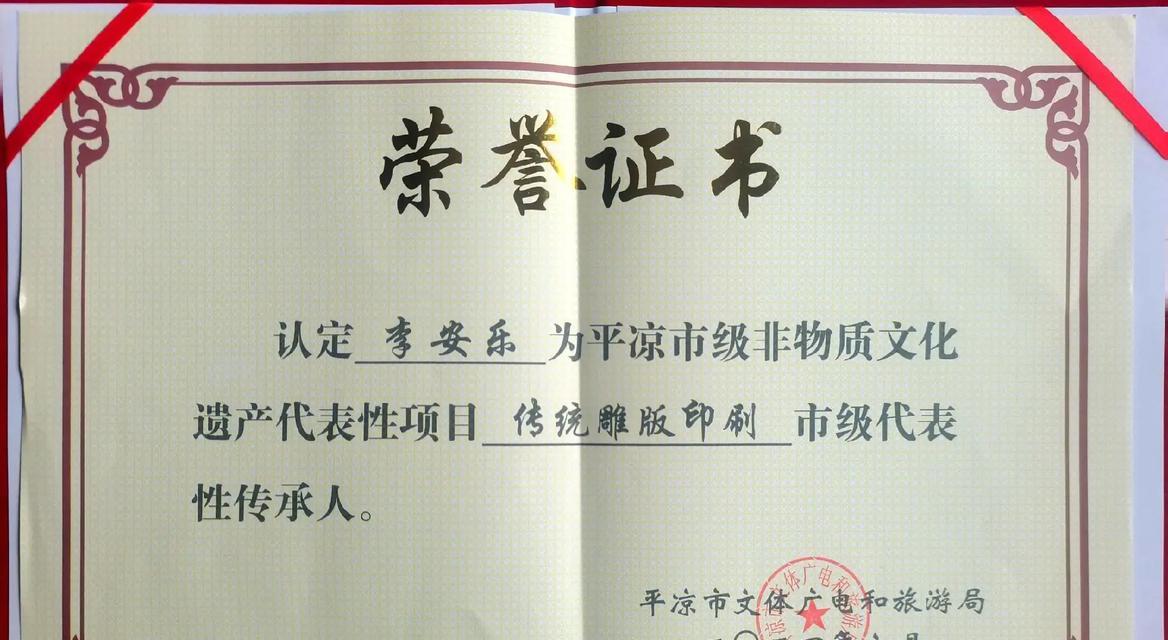 荣誉证书
认定 李安乐 为平凉市级非物质文化
遗产代表性项目 传统雕版印刷 市级代表
性传承人。
平凉市文体广电和旅游局